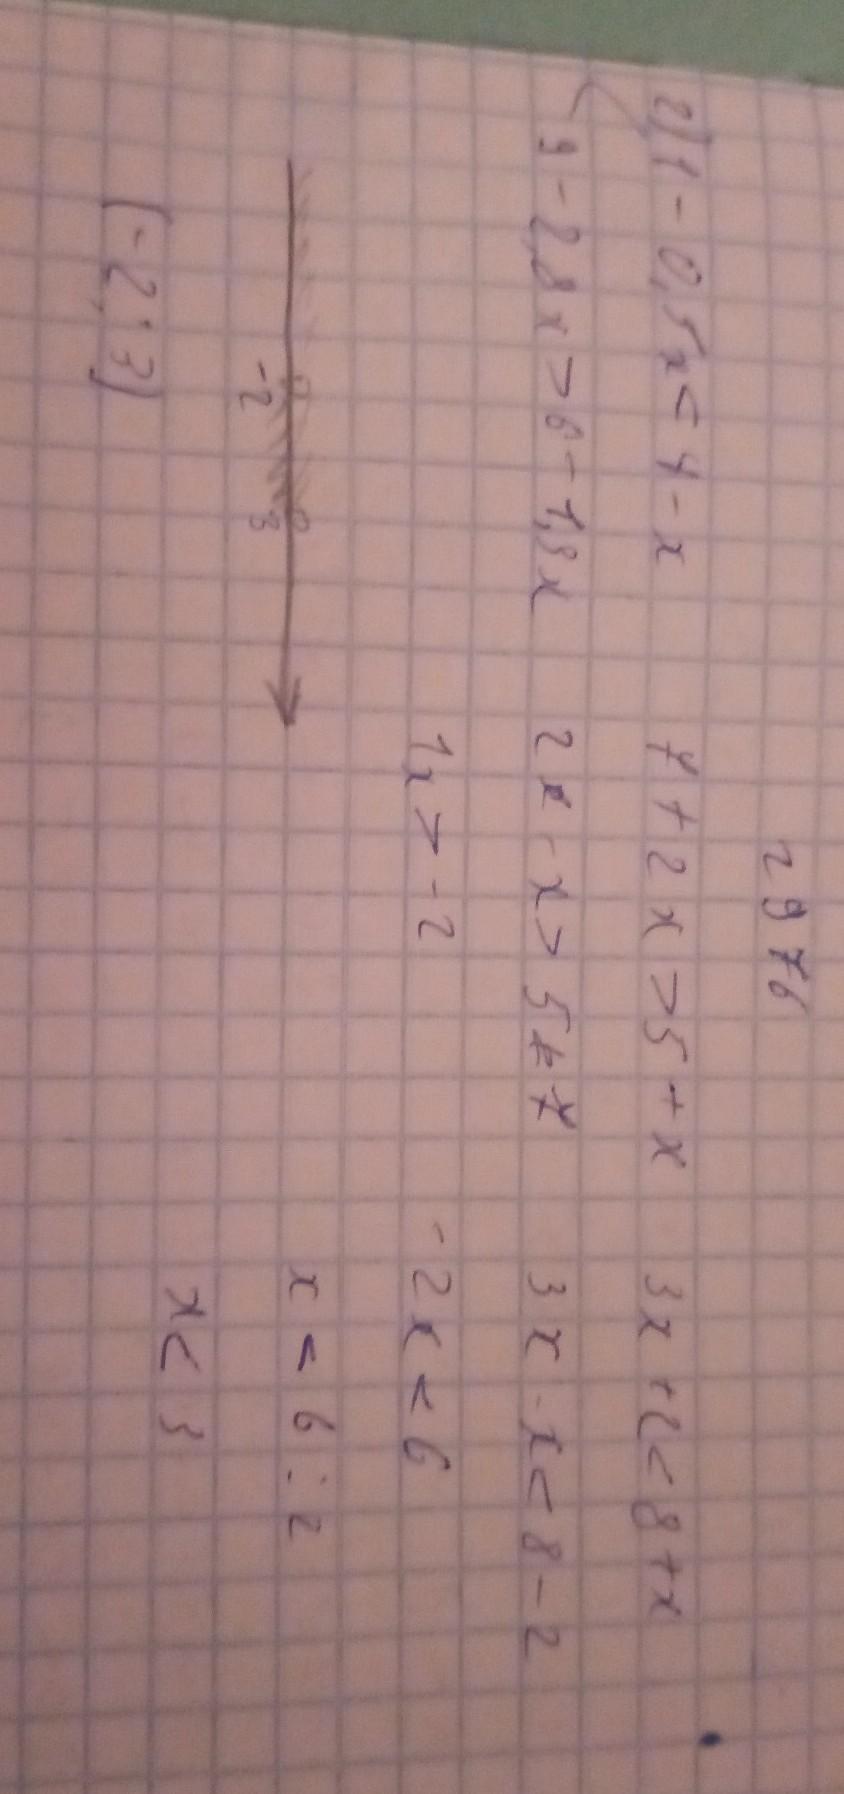 2976
2) 1 - 0,5x < 4 - x
9 - 2,8x > 6 - 1,8x
7 + 2x > 5 + x
2x - x > 5 - 7
1x > -2
3x + 2 < 8 + x
3x - x < 8 - 2
-2x < 6
x < 6 : 2
x < 3
-2 3
(-2; 3)